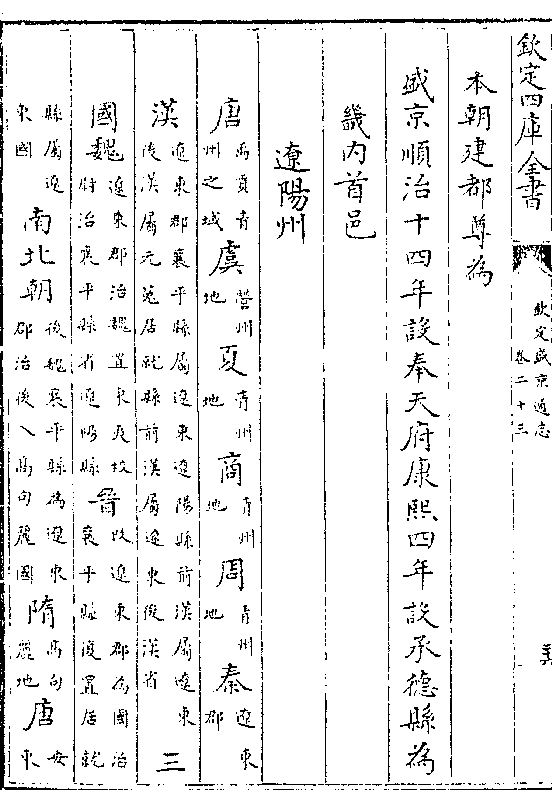 欽定四庫全書
欽定盛京通志
卷二十三
本朝建都尊為
盛京順治十四年設奉天府康熙四年設承德縣為
畿内首邑
遼陽州
唐禹貢青州之域虞營州地夏青州地商青州地周青州地秦遼東郡
漢遼東郡襄平縣屬遼東遼陽縣前漢屬遼東後漢屬元菟居就縣前漢屬遼東後漢省三
國魏遼東郡治魏置東夷校尉治襄平縣省遼陽縣晉改遼東郡為國治襄平縣復置居就
縣屬遼東國南北朝後魏襄平縣為遼東郡治後入高句麗國隋高句麗地唐安東